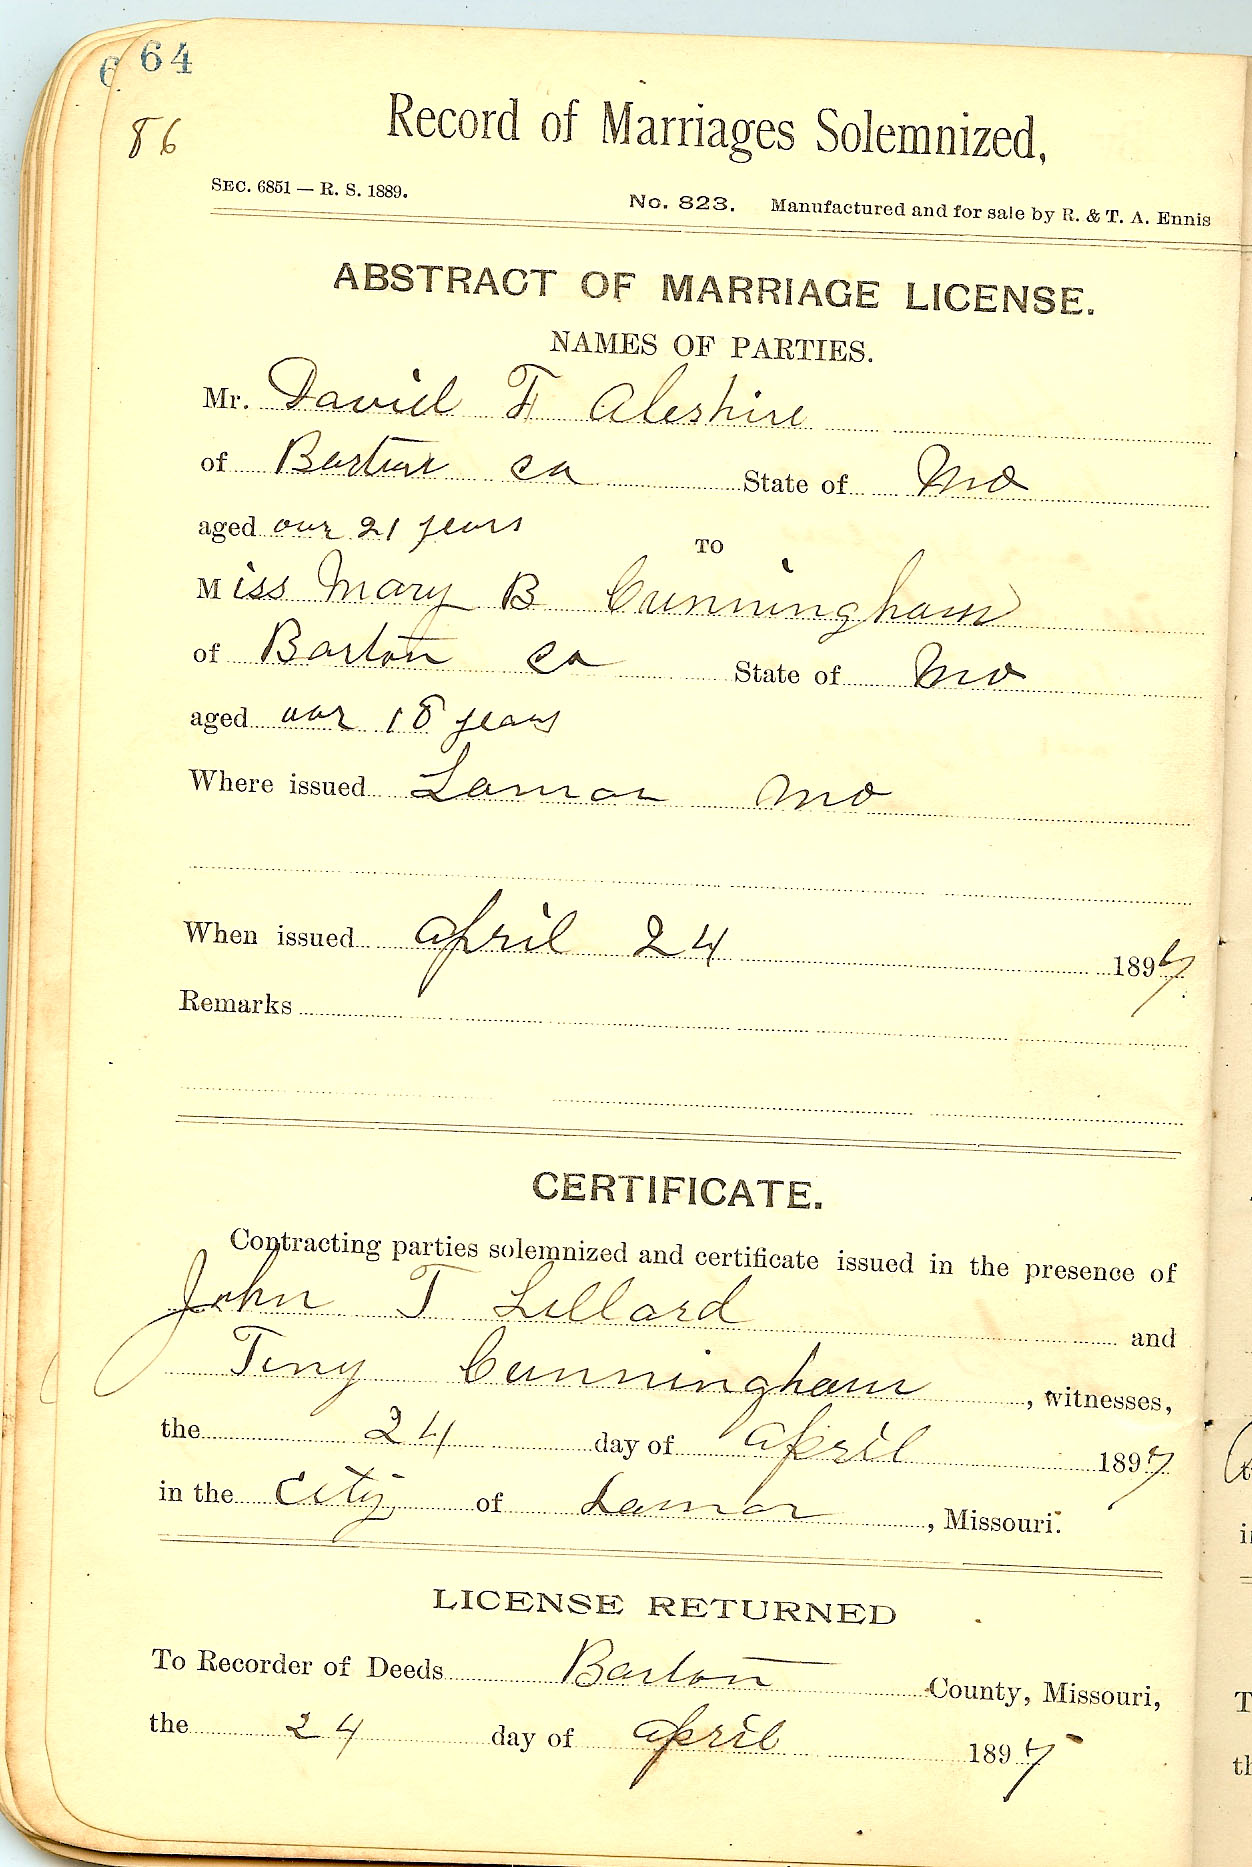 6 64
86
Record of Marriages Solemnized,
SEC. 6851 — R. S. 1889. No. 823. Manufactured and for sale by R. & T. A. Ennis
ABSTRACT OF MARRIAGE LICENSE.
NAMES OF PARTIES.
Mr. David F Aleshire
of Barton co State of Mo
aged over 21 years
TO
Miss Mary B Cunningham
of Barton co State of Mo
aged over 18 years
Where issued Lamar Mo
When issued April 24 1897
Remarks
CERTIFICATE.
Contracting parties solemnized and certificate issued in the presence of
John T Lillard and
Teny Cunningham, witnesses,
the 24 day of April 1897
in the City of Lamar, Missouri.
LICENSE RETURNED
To Recorder of Deeds Barton County, Missouri,
the 24 day of April 1897